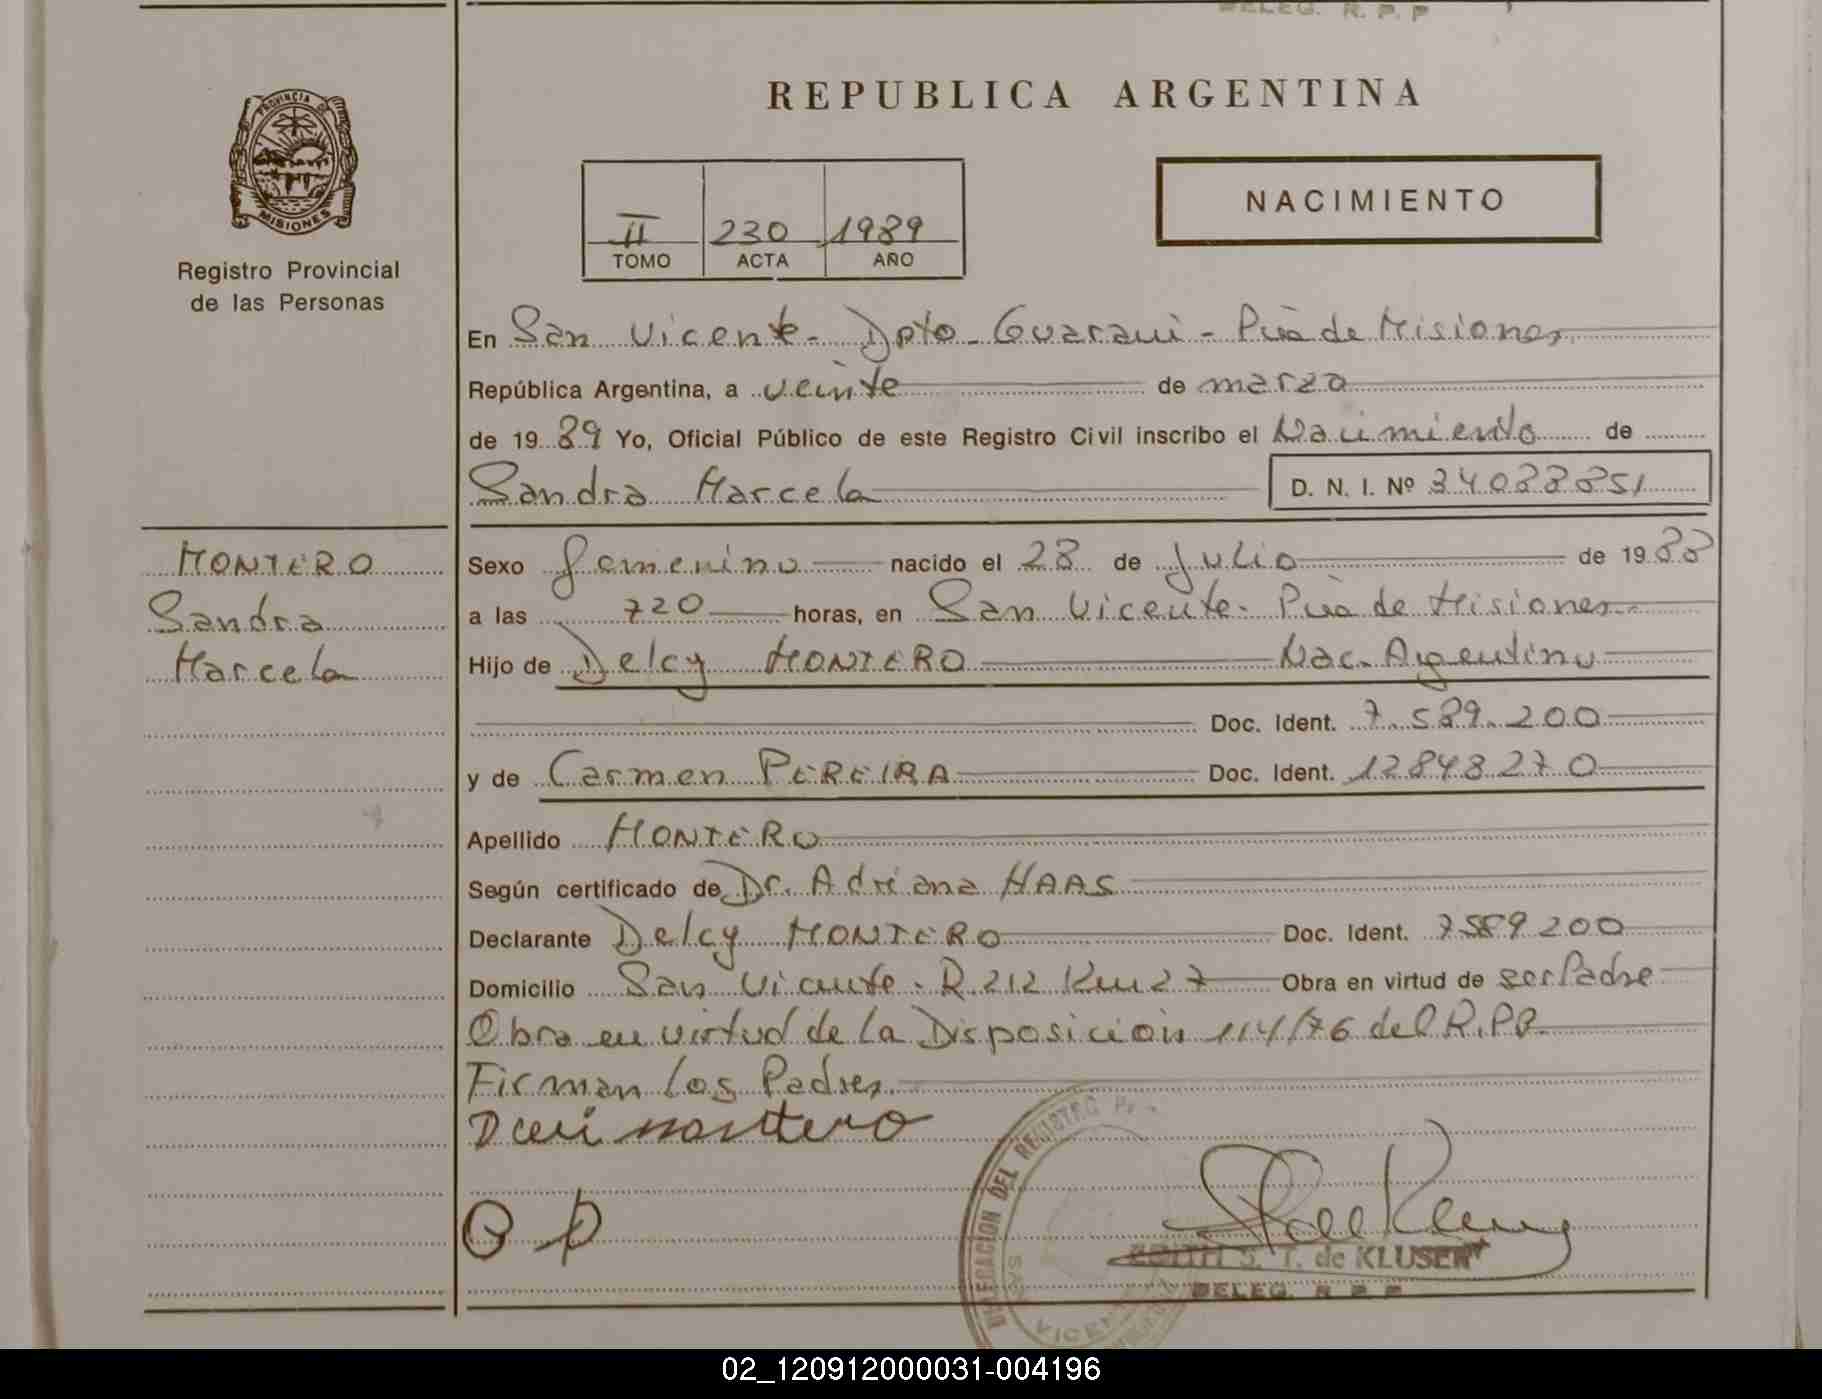 DELEG. R. P. P
PROVINCIA DE
MISIONES
Registro Provincial
de las Personas
REPUBLICA ARGENTINA
II 230 1989
TOMO ACTA AÑO
NACIMIENTO
En San Vicente - Dpto - Guarani - Pcia de Misiones
República Argentina, a veinte de marzo
de 1989 Yo, Oficial Público de este Registro Civil inscribo el Nacimiento de
Sandra Marcela D. N. I. Nº 34088851
MONTERO
Sandra
Marcela
Sexo femenino nacido el 28 de Julio de 1988
a las 720 horas, en San Vicente - Pcia de Misiones
Hijo de Delcy MONTERO Nac. Argentino
Doc. Ident. 7.589.200
y de Carmen PEREIRA Doc. Ident. 12848270
Apellido MONTERO
Según certificado de Dr. Adriana HAAS
Declarante Delcy MONTERO Doc. Ident. 7589200
Domicilio San Vicente - R 212 Km 27 Obra en virtud de ser Padre
Obra en virtud de la Disposición 114/76 del R.P.P.
Firman los Padres
montero
C P
DELEGACION DEL REGISTRO
EDITH S. T. de KLUSER
DELEG. R P P
02_120912000031-004196